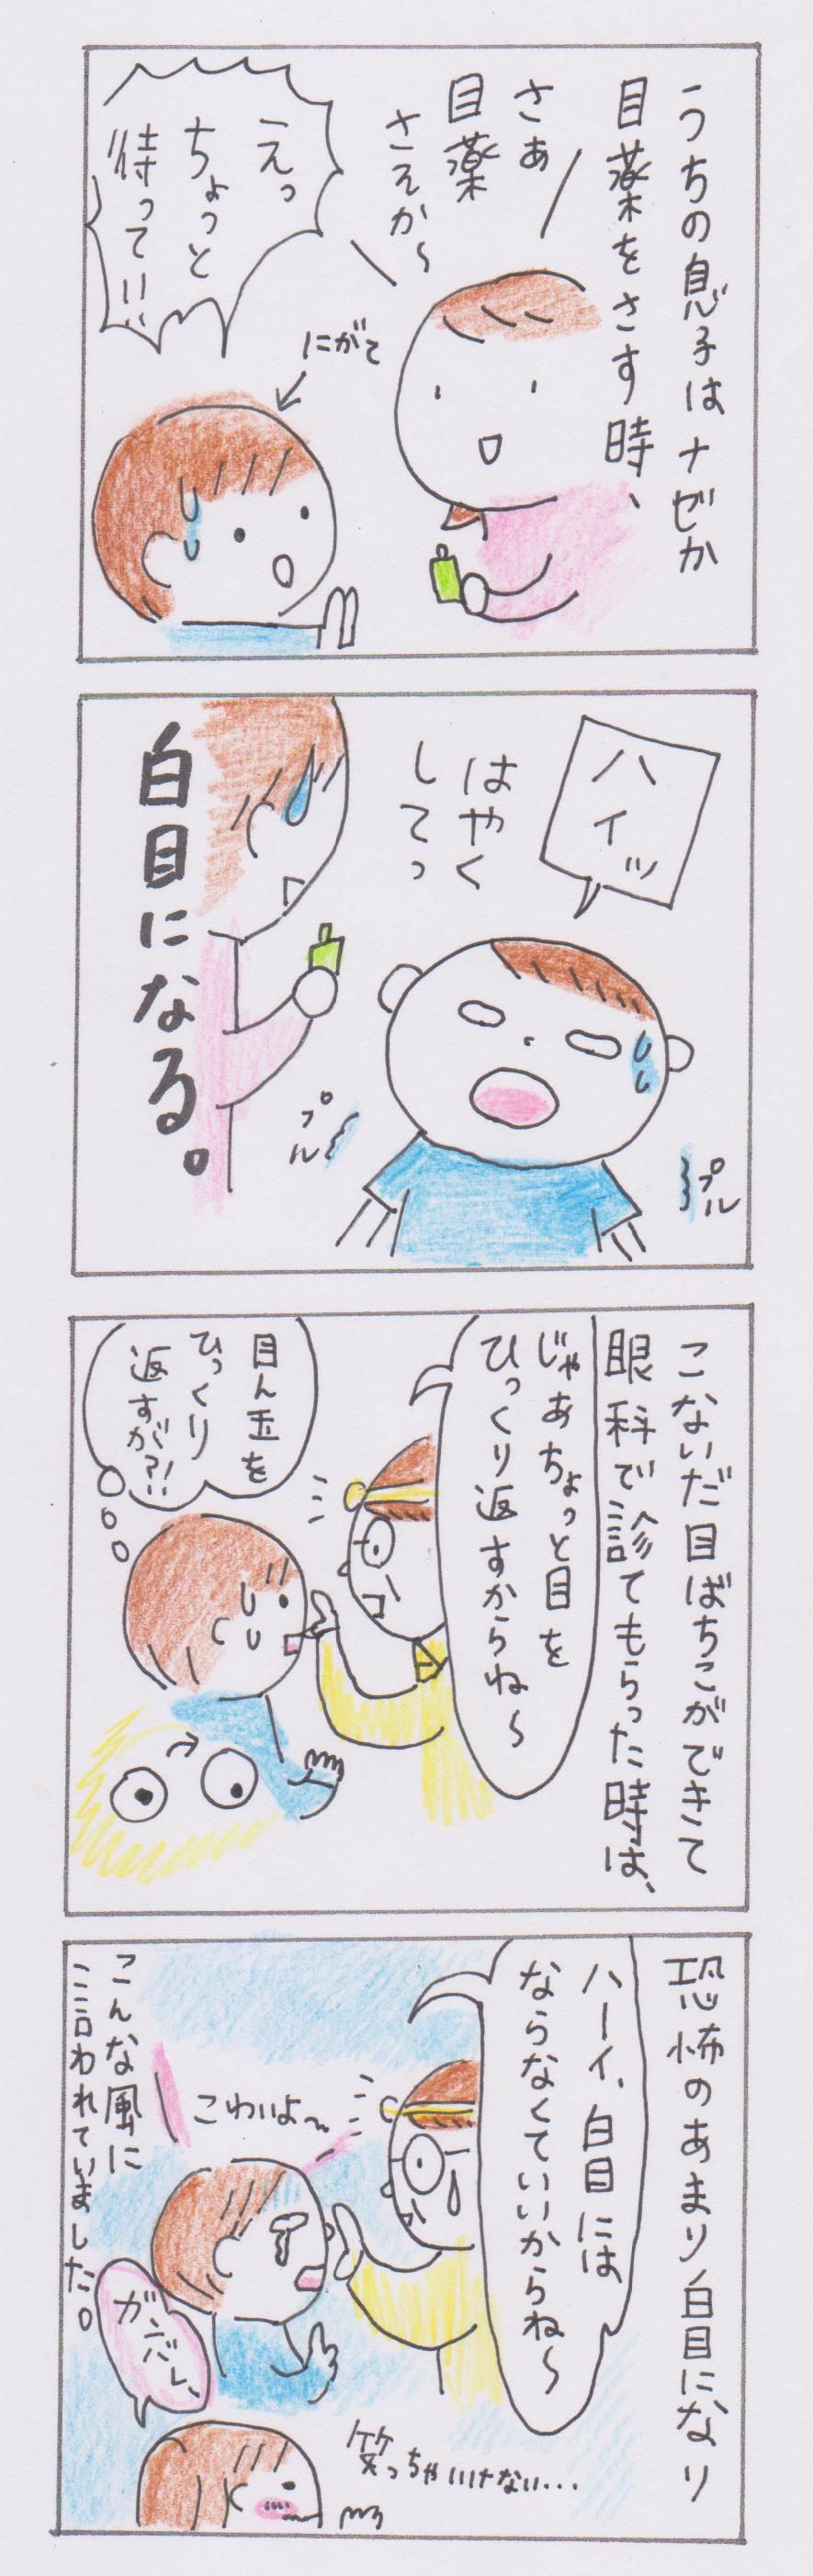 うちの息子はナゼか
目薬をさす時、
さぁ
目薬
さそか〜
えっ
ちょっと
待って!!
にがて
ハイッ
はやく
してっ
プル
プル
白目になる。
こないだ目ばちこができて
眼科で診てもらった時は、
じゃあちょっと目を
ひっくり返すからね〜
目ん玉を
ひっくり
返すが?!
恐怖のあまり白目になり
ハーイ、白目には
ならなくていいからね〜
こわいよ〜
こんな風に
言われていました。
ガンバレ、
笑っちゃいけない・・・